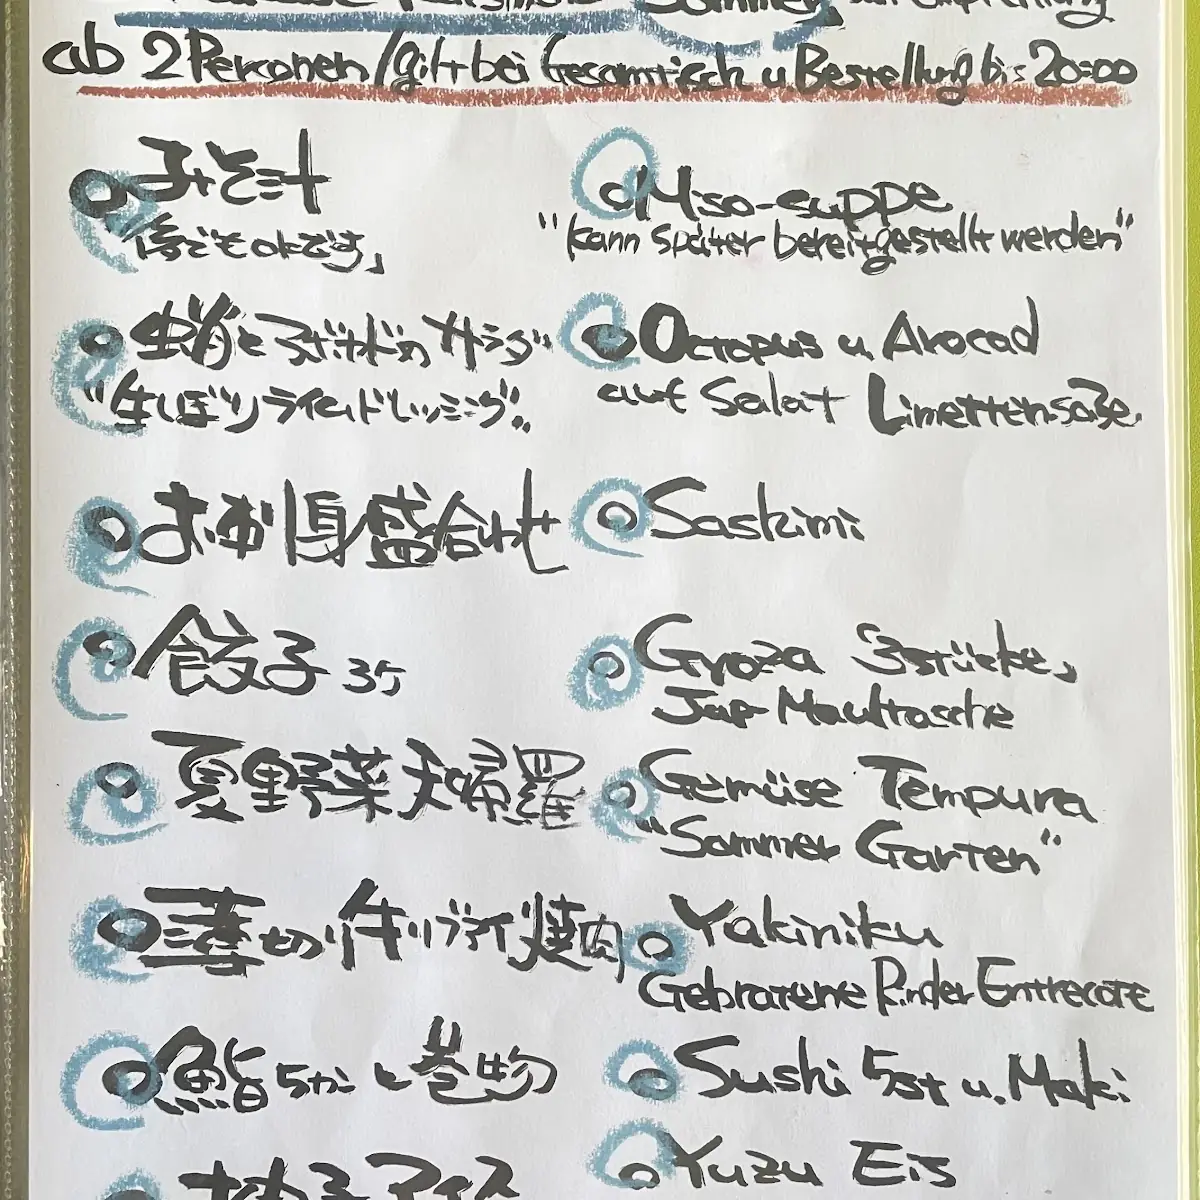 Sommer
ab 2 Personen / gilt bei Gesamttisch u. Bestellung bis 20:00
みそ汁
Miso-suppe
「後でもokです」
"kann später bereitgestellt werden"
蛸とアボカドのサラダ
Octopus u. Avocad
"生しぼりライムドレッシング"
auf Salat Limettensoße
お刺身盛合わせ
Sashimi
餃子 3ケ
Gyoza 3stücke,
Jap Maultasche
夏野菜天婦羅
Gemüse Tempura
"Sommer Garten"
薄切り牛リブアイ焼肉
Yakiniku
Gebratene Rinder Entrecote
鮨5カンと巻物
Sushi 5st u. Maki
柚子アイス
Yuzu Eis